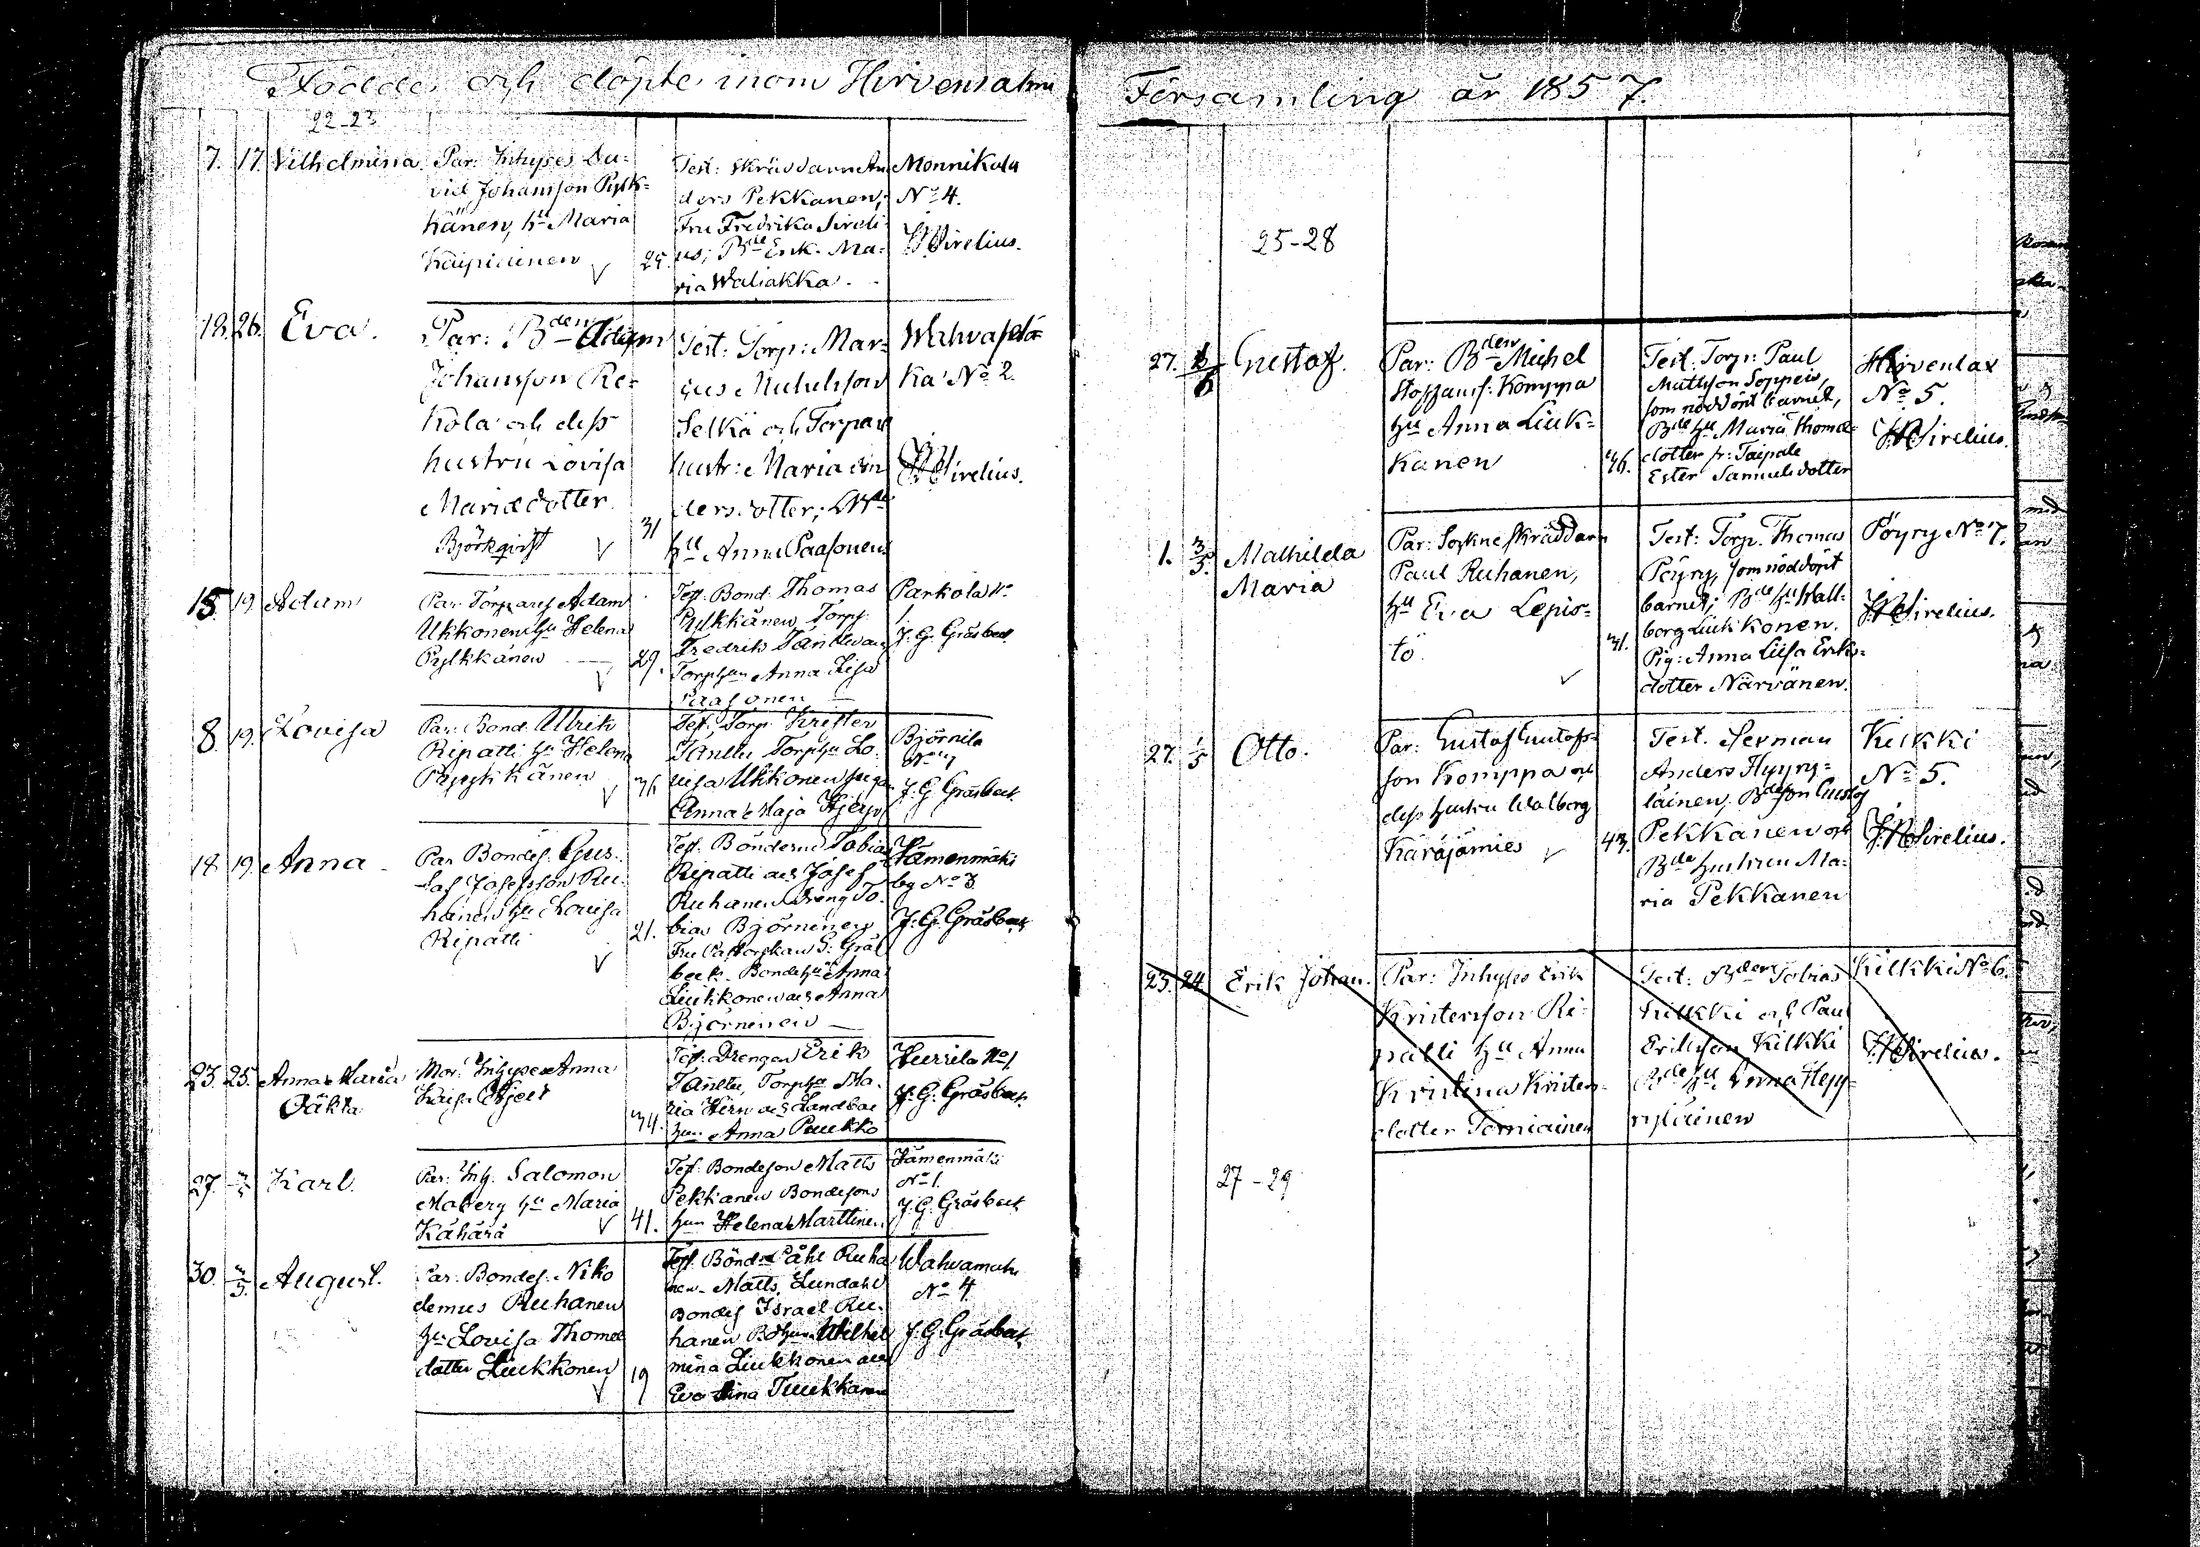 Födde och döpte inom Hirvensalmi
22-23
7. 17. Vilhelmina. Par: Inhyses Da-
vid Johansson Pylk-
känen, hu Maria
Kaipiainen 25.
Test: Skräddarn An
ders Pekkanen,
Fru Fredrika Sireli
us; Bde Enk. Ma-
ria Waliakka.
Monnikala
No 4.
Sirelius.
18. 26. Eva. Par: Bden Adam
Johansson Re-
kola och dess
hustru Lovisa
Mariædotter
Björkqvist 31
Test: Torp: Mar-
cus Michelsson
Selkä och Torpar
hustr: Maria An
dersdotter;
hu Anna Paasonen
No 2.
Sirelius.
15. 19. Adam Par: Torparen Adam
Ukkonen hu Helena
Pylkkänen 29.
Test: Bond. Thomas
Pylkkänen Torp:
Fredrik
Anna Lisa
Paasonen
Parkola No
1
J. G. Gråsbeck
8. 19. Lovisa Par: Bond. Ulrik
Ripatti hu Helena
36
Test: Torp. Krister
Lo-
visa Ukkonen
Anna Maja
Björnila
J. G. Gråsbeck
18. 19. Anna Par Bondes. Gus-
taf Josefsson Ru-
hanen hu Lovisa
Ripatti 21.
Test: Bönderne Tobias
Ripatti och Josef
Ruhanen Dreng To-
bias Björninen
Fru Pastorskan S. Grås
beck. Bondehu Anna
Liukkonen och Anna
Björninen
Hämenmäki
by No 3
J. G. Gråsbeck
23. 25. Anna Maria
Oäkta
Mor: Inhyses Anna
34.
Test: Drengen Erik
Ma-
ria Hirn och
Anna Paukko
Hurrila No 1
J. G. Gråsbeck
27. Karl. Par: Inh. Salomon
Moberg hu Maria
Kähärä 41.
Test: Bondeson Matts
Pekkanen Bondesons
hun Helena Marttinen
Hämenmäki
No 1.
J. G. Gråsbeck
30. August. Par: Bondes. Niko
demus Ruhanen
hu Lovisa Thomæ
dotter Liukkonen 19
Påhl Ruha
nen. Matts Lundahl
Bondes Israel Ru-
hanen Wilhel
mina Liukkonen och
Eva Stina Tuukkanen
Wahvamäki
No 4.
J. G. Gråsbeck
Församling år 1857.
25-28
27. Gustaf. Par: Bden Michel
Staffanss: Komppa
hu Anna Liuk-
kanen 36.
Test. Torp: Paul
Mattsson Soppein,
som nöddöpt barnet,
Bde hu Maria Thomæ-
dotter fr: Taipale
Ester Samuelsdotter
Hirvenlax
No 5.
Sirelius.
1. 3/5. Mathilda
Maria
Par: Sockneskräddarn
Paul Ruhanen,
hu Eva Lepis-
tö. 31.
Test: Torp. Thomas
Pöyry, som nöddöpt
barnet; Bde hu Wall-
borg Liukkonen.
Pig: Anna Lisa Eriks-
dotter Närvänen.
Pöyry No 7.
Sirelius.
27. 1/5 Otto. Par: Gustaf Gustafs-
son Komppa och
dess hustru Walborg
Käräjämies 43.
Test. Herman
Anders Hyyry-
läinen, Bdeson Gustaf
Pekkanen och
Bde hustrun Ma-
ria Pekkanen
Kilkki
No 5.
Sirelius.
23. 24. Erik Johan. Par: Inhyses Erik
Kristersson Ri-
patti hu Anna
Kristina Krister-
dotter Torniainen
Test: Bden Tobias
Kilkki och Paul
Eriksson Kilkki
Bde hu Anna Hyy-
ryläinen
Kilkki No 6.
Sirelius.
27-29